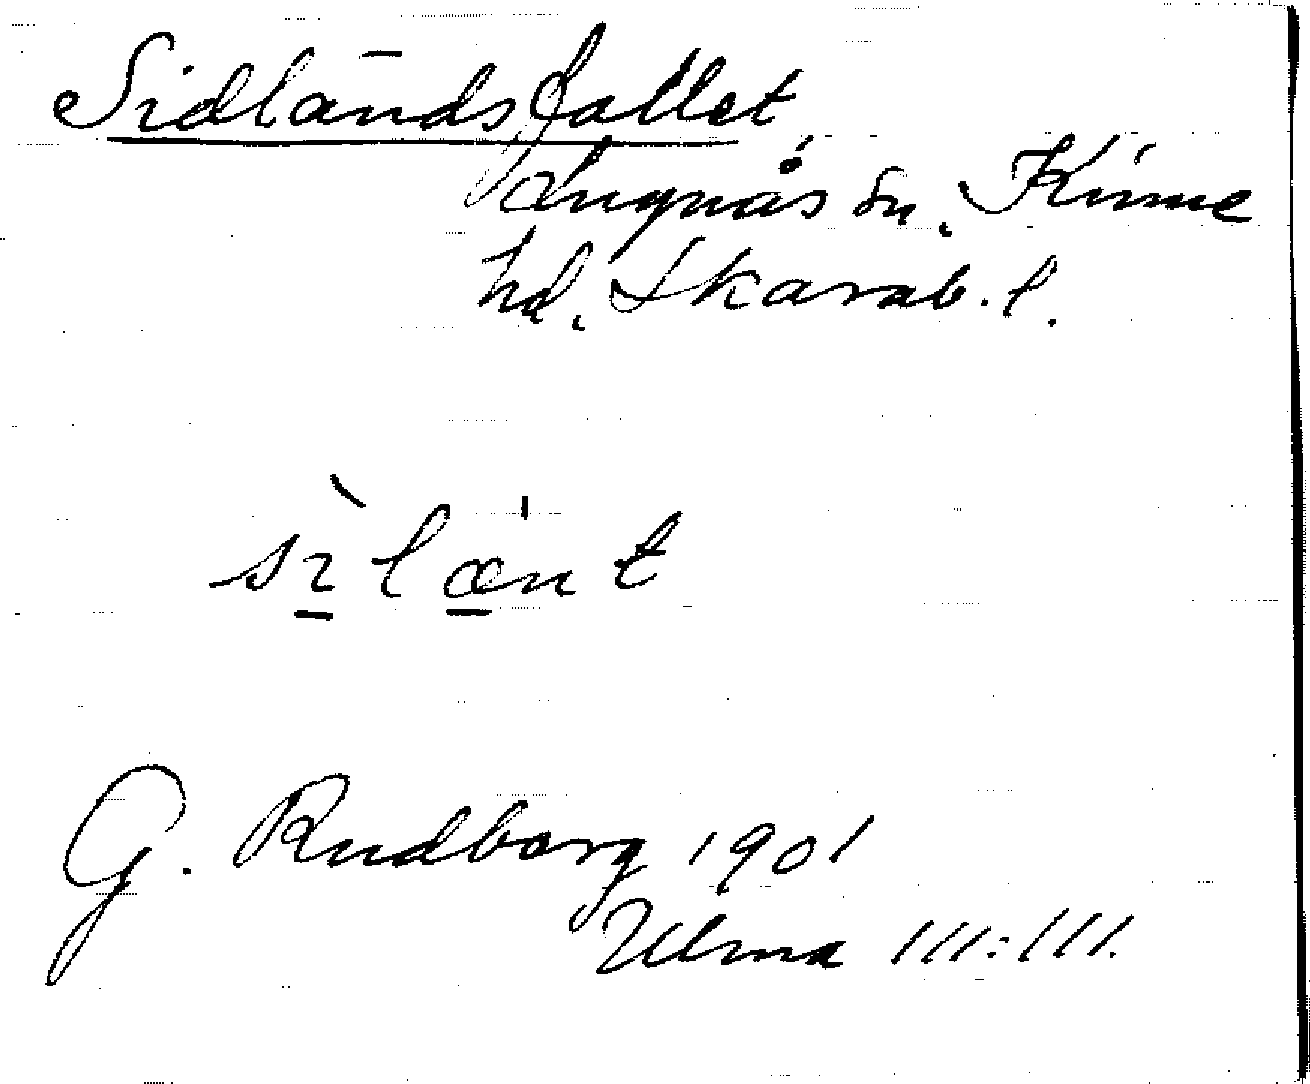 Sidländsfallet
Lugnås sn, Kinne
hd, Skarab. l.
sìlænt
G. Rudberg 1901
Ulma 111:111.